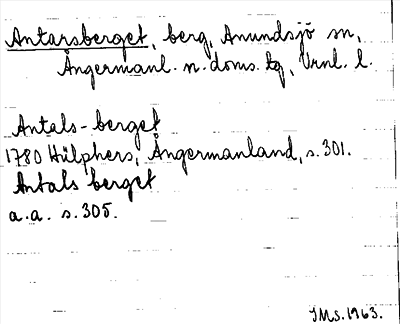 Antarsberget, berg, Anundsjö sn,
Ångermanl. n. doms. tg, Vrnl. l.
Antals-berget
1780 Hülphers, Ångermanland, s. 301.
Antals berget
a.a. s. 305.
IMs. 1963.